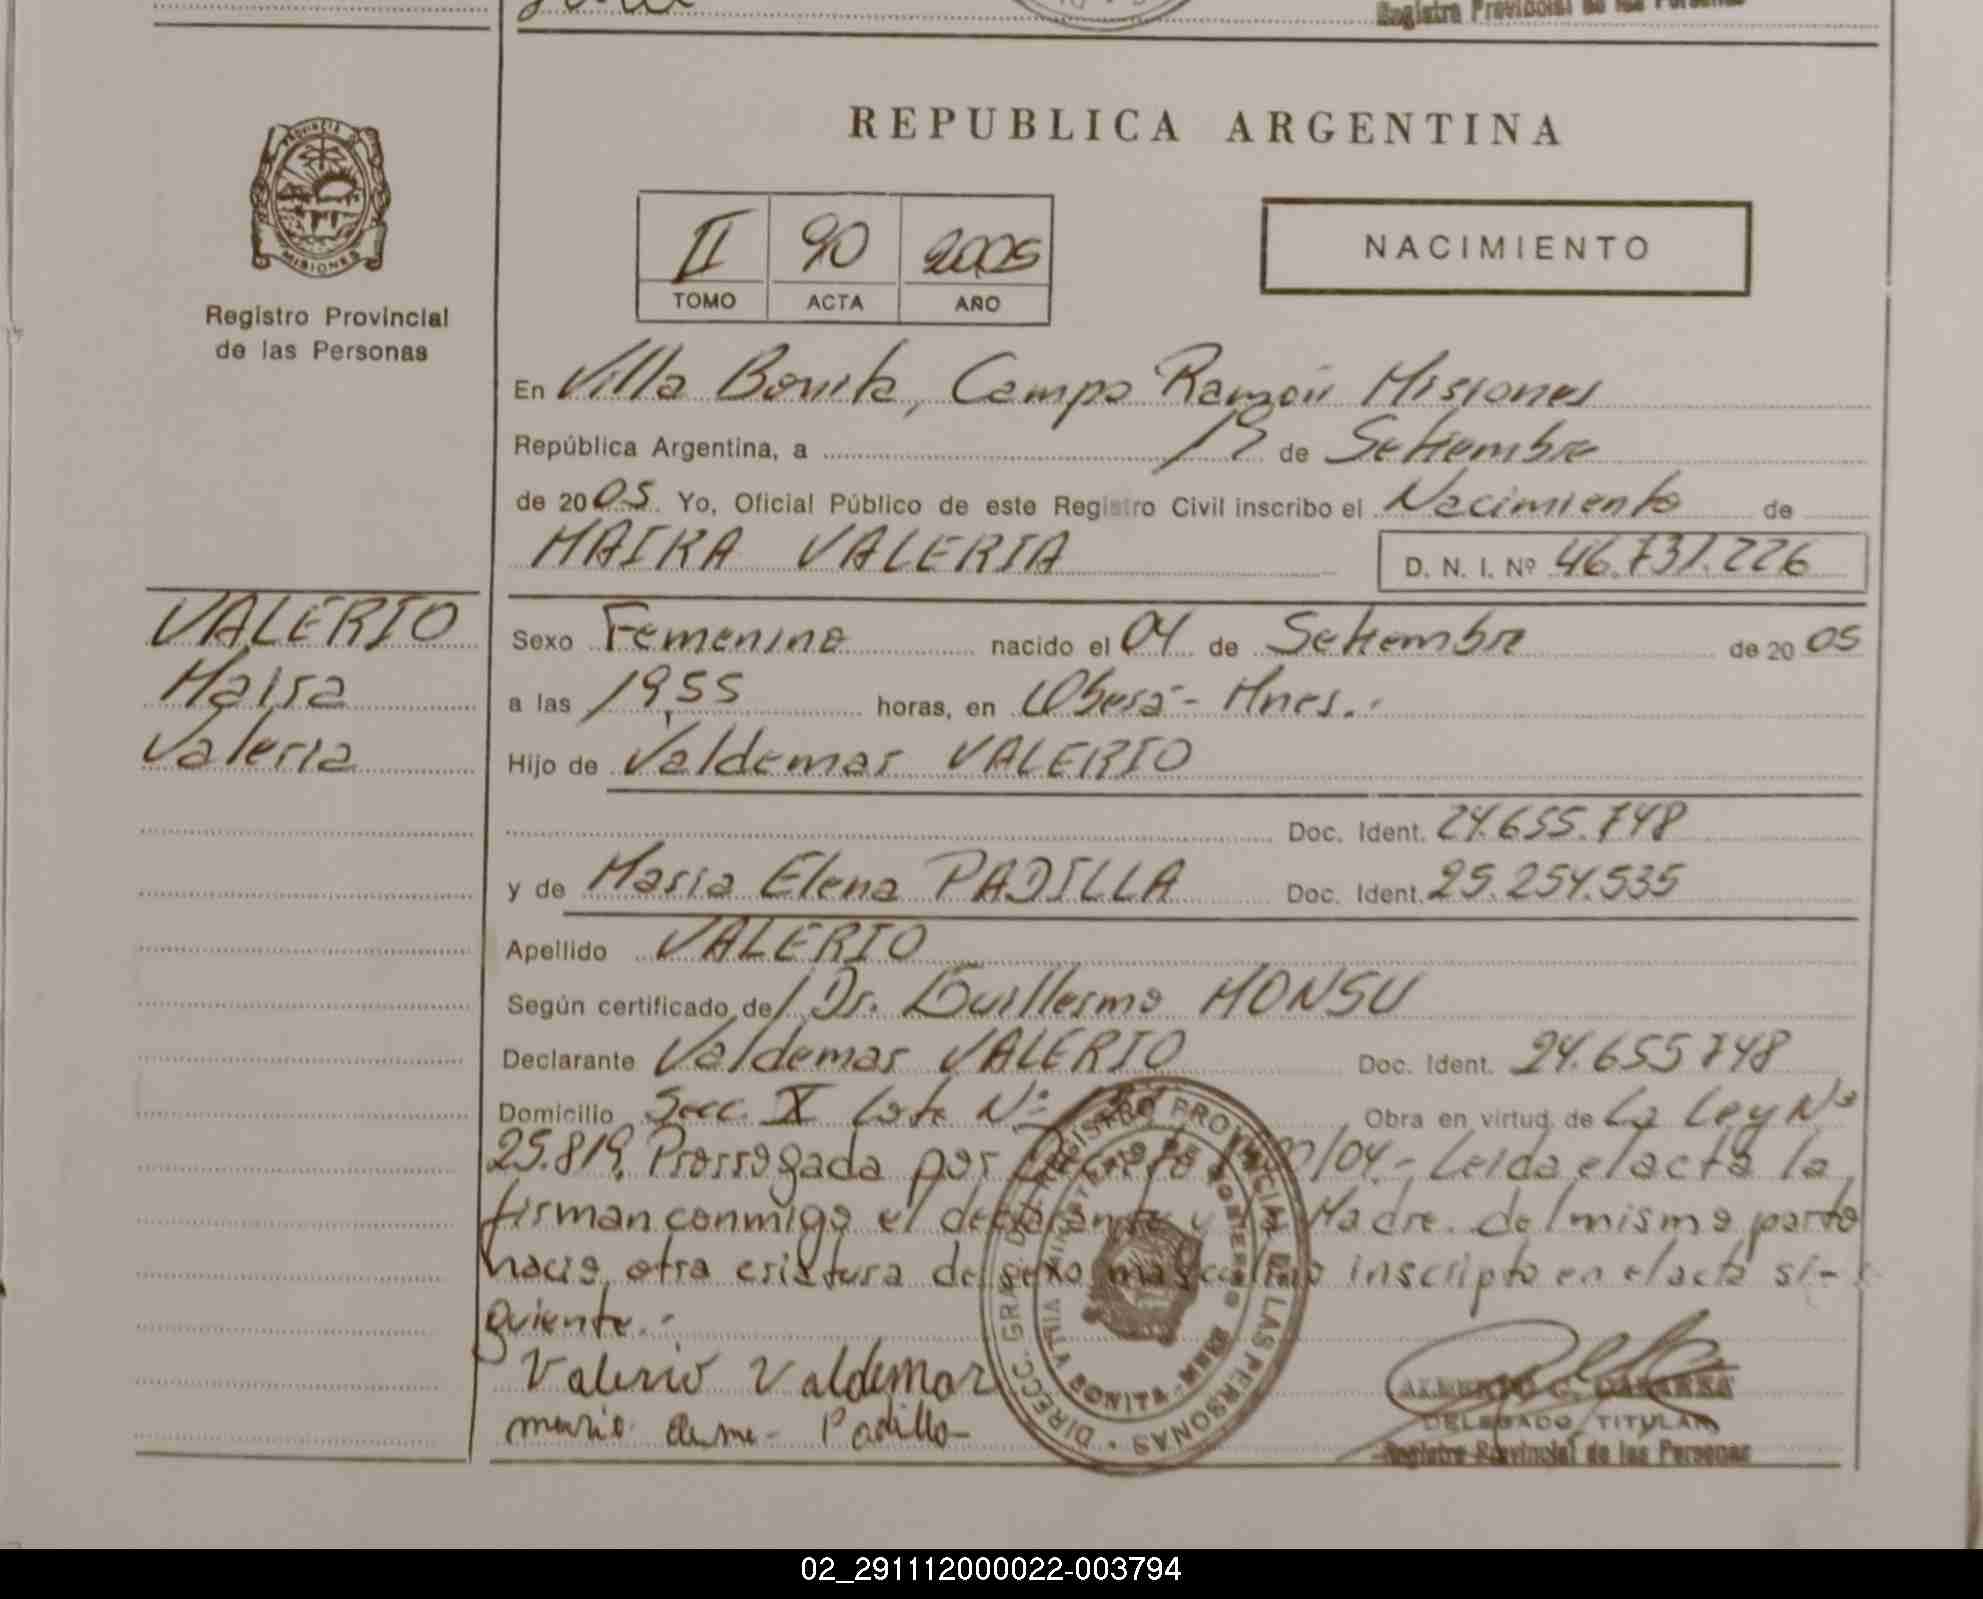 Registro Provincial de las Personas
REPUBLICA ARGENTINA
PROVINCIA DE
MISIONES
Registro Provincial
de las Personas
II 90 2005
TOMO ACTA AÑO
NACIMIENTO
En Villa Bonita, Campo Ramón Misiones
República Argentina, a 19 de Setiembre
de 2005. Yo, Oficial Público de este Registro Civil inscribo el Nacimiento de
MAIRA VALERIA D. N. I. Nº 46.731.226
VALERIO
Maira
Valeria
Sexo Femenino nacido el 04 de Setiembre de 2005
a las 19,55 horas, en Oberá - Mnes.-
Hijo de Valdemar VALERIO
Doc. Ident. 24.655.748
y de Maria Elena PADILLA Doc. Ident. 25.254.535
Apellido VALERIO
Según certificado de/ Dr. Guillermo MONSU
Declarante Valdemar VALERIO Doc. Ident. 24.655748
Domicilio Secc. X Lote Nº Obra en virtud de La Ley Nº
25.819, Prorrogada por /04.- Leida el acta la
firman conmigo el declarante y la Madre. del mismo parto
nacio otra criatura de sexo masculino inscripto en el acta si-
guiente.-
Valerio Valdemar
maria elena Padilla
DIRECC. GRAL. DE REGISTRO PROVINCIAL DE LAS PERSONAS
MINISTERIO DE GOBIERNO
VILLA BONITA - MNES
DELEGADO TITULAR
Registro Provincial de las Personas
02_291112000022-003794